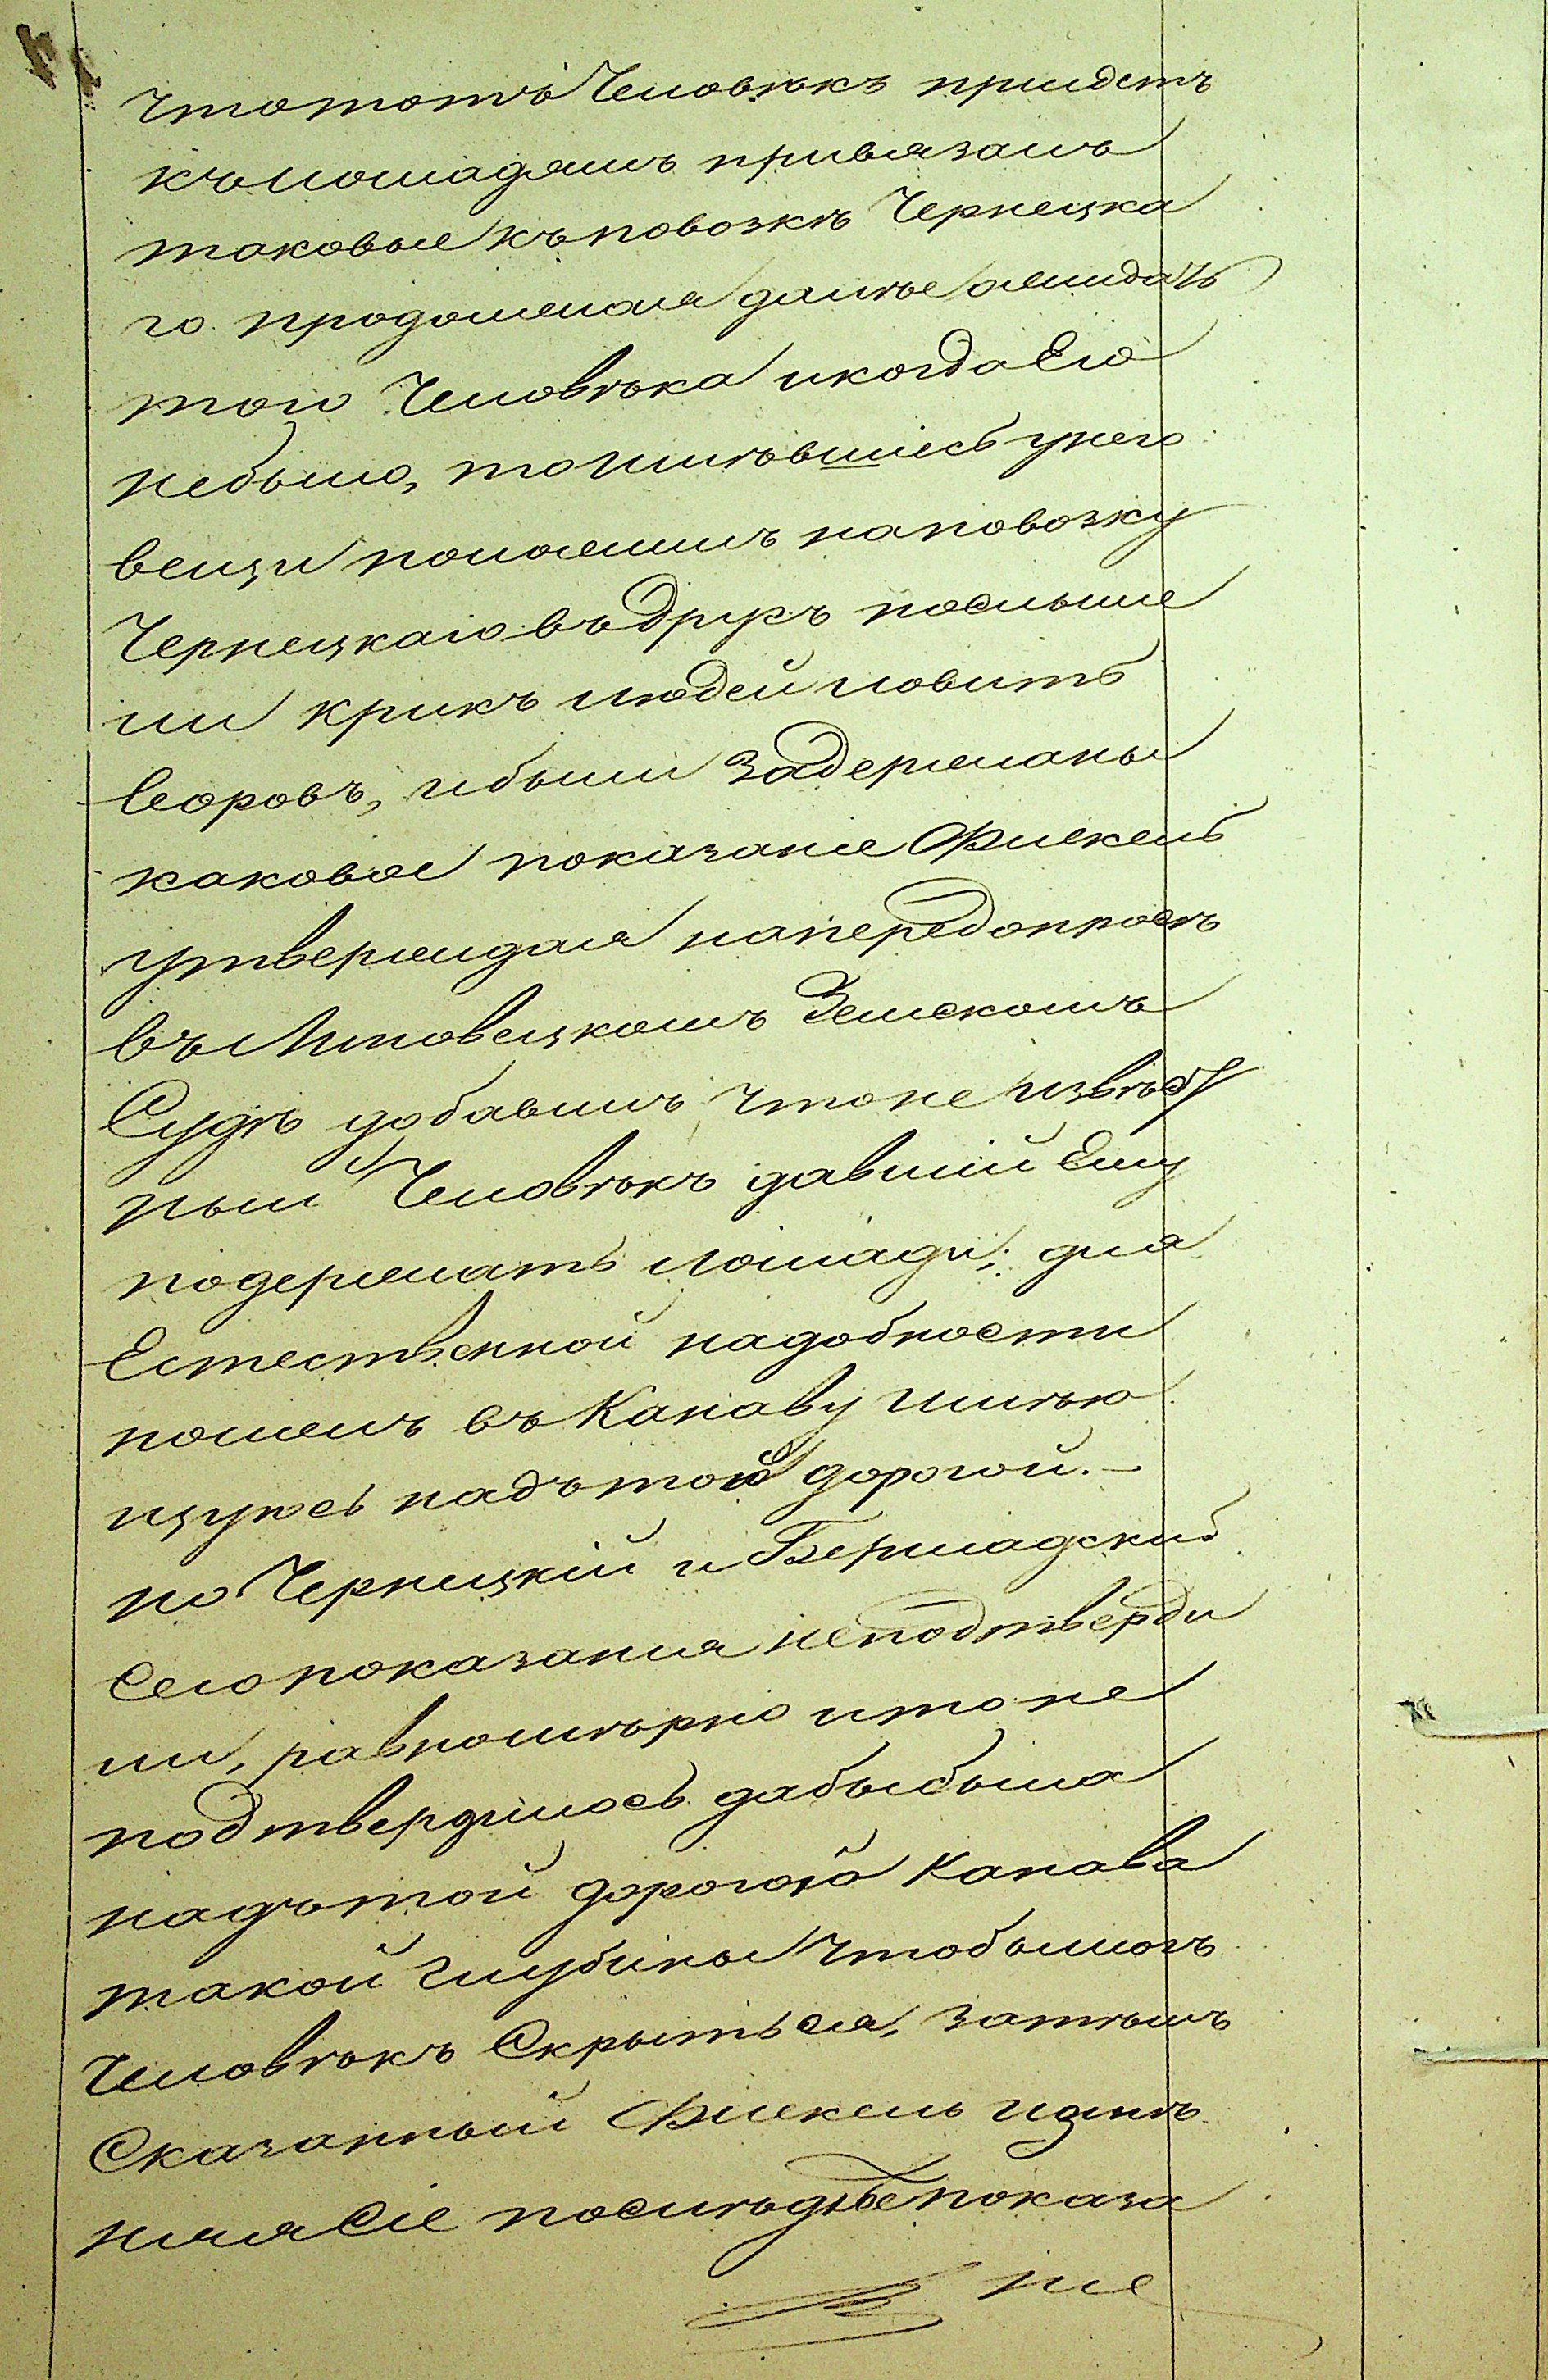 что тотъ Человѣкъ придетъ
къ лошадямъ привязалъ
таковые къ повозкѣ Чернецка
го продолжая далѣе ожидать
того Человѣка и когда Его
небыло, то имѣвшiесь унего
вещи положилъ на повозку
Чернецкаго въдругъ послыше
ли крикъ людей ловить
воровъ, и были задержаны
каковое показанiе Фискель
утверждая напередопросѣ
въ Липовецкомъ Земскомъ
Судѣ добавилъ, что не извѣст
ный Человѣкъ давшiй Ему
подержать лошади, для
Естественной надобности
пошелъ въ Канаву имѣю
щуюсь надъ той дорогой. —
но Чернецкiй и Бершадскiй
сего показанiя неподтверди
ли, равномѣрно и то не
подтвердилось дабы была
надъ той дорогой Канава
такой глубины чтобы могъ
Человѣкъ Скрыться, затѣмъ
Сказанный Фискель измѣ
нилъ Сiе послѣднее показа
нiе